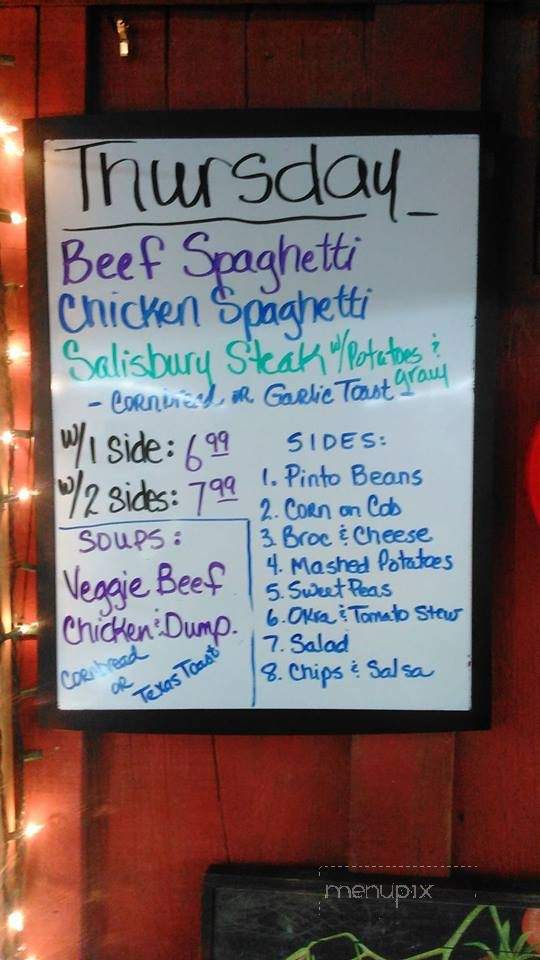 Thursday
Beef Spaghetti
Chicken Spaghetti
Salisbury Steak w/Potatoes & gravy
- Cornbread or Garlic Toast -
w/1 side: 6 99
w/2 sides: 7 99
SOUPS:
Veggie Beef
Chicken & Dump.
Cornbread
OR
Texas Toast
SIDES:
1. Pinto Beans
2. Corn on Cob
3. Broc & Cheese
4. Mashed Potatoes
5. Sweet Peas
6. Okra & Tomato Stew
7. Salad
8. Chips & Salsa
menupix